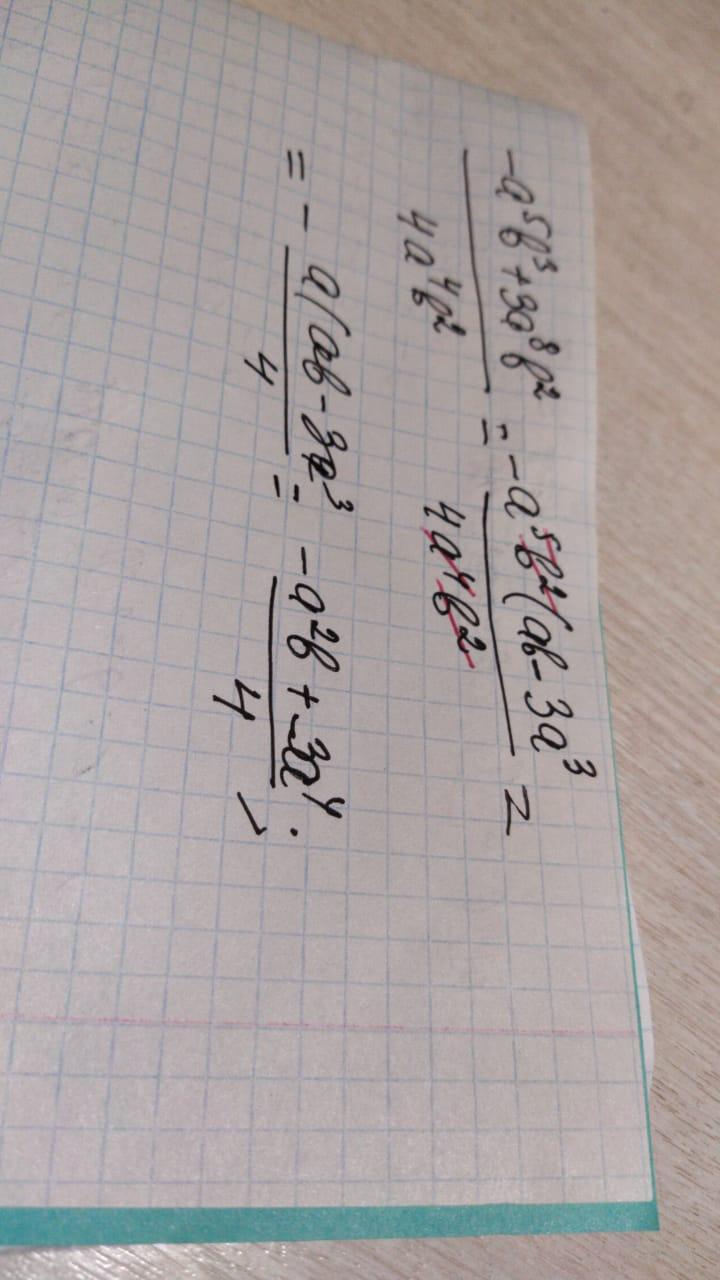 -a⁵b³+3a⁸b² / 4a⁴b² = -a⁵b²(ab-3a³ / 4a⁴b² =
= - a(ab-3a³ / 4 = -a²b+3a⁴ / 4 ;